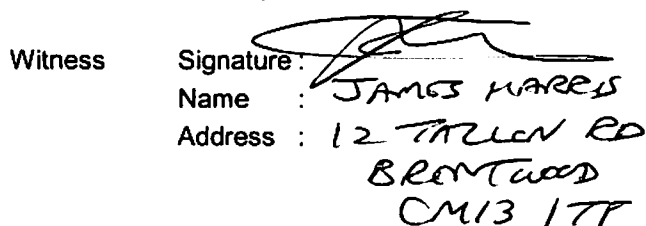 Witness Signature :
Name : JAMES HARRIS
Address : 12 TALLON RD
BRENTWOOD
CM13 1TP